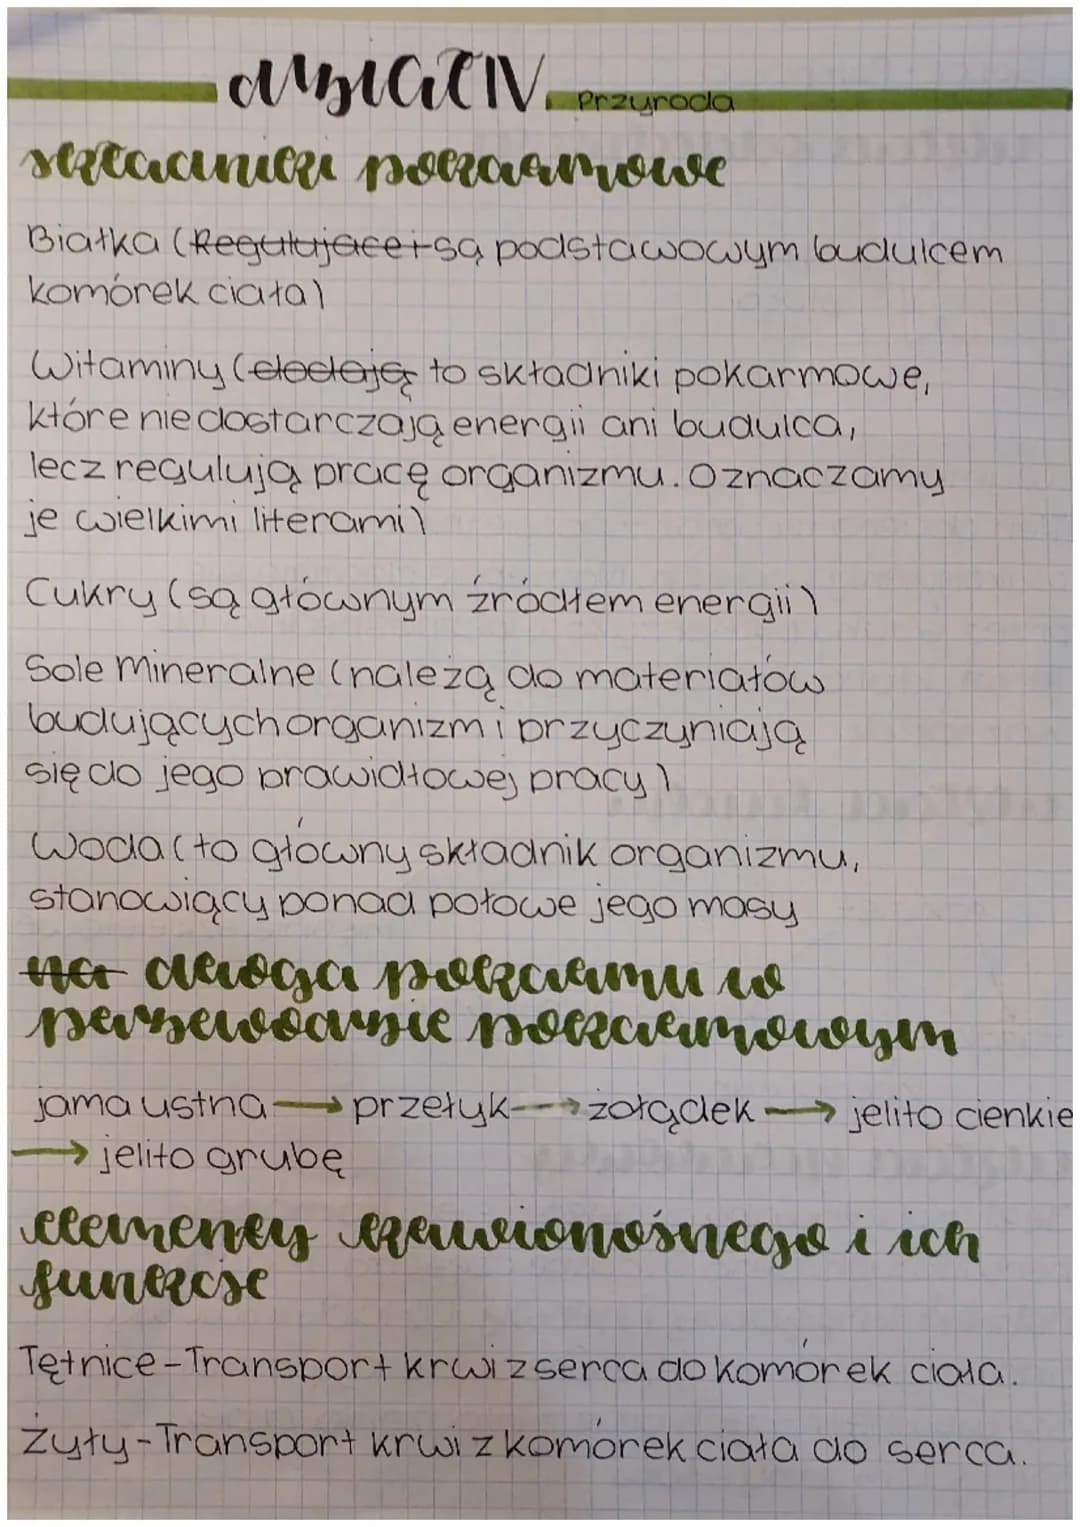 Dział IV. Przyroda
składniki pokarmowe
Białka (Regulujące i są podstawowym budulcem
komórek ciała)
Witaminy (dodają to składniki pokarmowe,
które nie dostarczają energii ani budulca,
lecz regulują pracę organizmu. Oznaczamy
je wielkimi literami)
Cukry (są głównym źródłem energii)
Sole Mineralne (należą do materiałów
budujących organizm i przyczyniają
się do jego prawidłowej pracy)
Woda (to główny składnik organizmu,
stanowiący ponad połowe jego masy
na droga pokarmu w
przewodzie pokarmowym
jama ustna → przełyk → żołądek → jelito cienkie
→ jelito grubę
elementy krwionośnego i ich
funkcje
Tętnice - Transport krwi z serca do komórek ciała.
Żyły - Transport krwi z komórek ciała do serca.